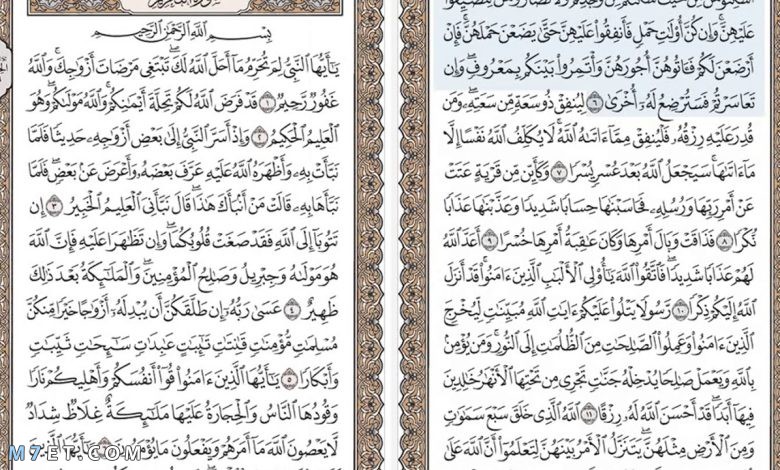 عَلَيْهِنَّ وَإِن كُنَّ أُوْلَٰتِ حَمْلٖ فَأَنفِقُواْ عَلَيْهِنَّ حَتَّىٰ يَضَعْنَ حَمْلَهُنَّۚ فَإِنْ
أَرْضَعْنَ لَكُمْ فَـَٔاتُوهُنَّ أُجُورَهُنَّ وَأْتَمِرُواْ بَيْنَكُم بِمَعْرُوفٖۖ وَإِن
تَعَاسَرْتُمْ فَسَتُرْضِعُ لَهُۥٓ أُخْرَىٰ ٦ لِيُنفِقْ ذُو سَعَةٖ مِّن سَعَتِهِۦۖ وَمَن
قُدِرَ عَلَيْهِ رِزْقُهُۥ فَلْيُنفِقْ مِمَّآ ءَاتَىٰهُ ٱللَّهُۚ لَا يُكَلِّفُ ٱللَّهُ نَفْسًا إِلَّا
مَآ ءَاتَىٰهَاۚ سَيَجْعَلُ ٱللَّهُ بَعْدَ عُسْرٖ يُسْرٗا ٧ وَكَأَيِّن مِّن قَرْيَةٍ عَتَتْ
عَنْ أَمْرِ رَبِّهَا وَرُسُلِهِۦ فَحَاسَبْنَٰهَا حِسَابٗا شَدِيدٗا وَعَذَّبْنَٰهَا عَذَابٗا
نُّكْرٗا ٨ فَذَاقَتْ وَبَالَ أَمْرِهَا وَكَانَ عَٰقِبَةُ أَمْرِهَا خُسْرًا ٩ أَعَدَّ ٱللَّهُ
لَهُمْ عَذَابٗا شَدِيدٗاۖ فَٱتَّقُواْ ٱللَّهَ يَٰٓأُوْلِي ٱلْأَلْبَٰبِ ٱلَّذِينَ ءَامَنُواْۚ قَدْ أَنزَلَ
ٱللَّهُ إِلَيْكُمْ ذِكْرٗا ١٠ رَّسُولٗا يَتْلُواْ عَلَيْكُمْ ءَايَٰتِ ٱللَّهِ مُبَيِّنَٰتٖ لِّيُخْرِجَ
ٱلَّذِينَ ءَامَنُواْ وَعَمِلُواْ ٱلصَّٰلِحَٰتِ مِنَ ٱلظُّلُمَٰتِ إِلَى ٱلنُّورِۚ وَمَن يُؤْمِنۢ
بِٱللَّهِ وَيَعْمَلْ صَٰلِحٗا يُدْخِلْهُ جَنَّٰتٖ تَجْرِي مِن تَحْتِهَا ٱلْأَنْهَٰرُ خَٰلِدِينَ
فِيهَآ أَبَدٗاۖ قَدْ أَحْسَنَ ٱللَّهُ لَهُۥ رِزْقًا ١١ ٱللَّهُ ٱلَّذِي خَلَقَ سَبْعَ سَمَٰوَٰتٖ
وَمِنَ ٱلْأَرْضِ مِثْلَهُنَّۖ يَتَنَزَّلُ ٱلْأَمْرُ بَيْنَهُنَّ لِتَعْلَمُوٓاْ أَنَّ ٱللَّهَ عَلَىٰ
بِسْمِ ٱللَّهِ ٱلرَّحْمَٰنِ ٱلرَّحِيمِ
يَٰٓأَيُّهَا ٱلنَّبِيُّ لِمَ تُحَرِّمُ مَآ أَحَلَّ ٱللَّهُ لَكَۖ تَبْتَغِي مَرْضَاتَ أَزْوَٰجِكَۚ وَٱللَّهُ
غَفُورٞ رَّحِيمٞ ١ قَدْ فَرَضَ ٱللَّهُ لَكُمْ تَحِلَّةَ أَيْمَٰنِكُمْۚ وَٱللَّهُ مَوْلَىٰكُمْۖ وَهُوَ
ٱلْعَلِيمُ ٱلْحَكِيمُ ٢ وَإِذْ أَسَرَّ ٱلنَّبِيُّ إِلَىٰ بَعْضِ أَزْوَٰجِهِۦ حَدِيثٗا فَلَمَّا
نَبَّأَتْ بِهِۦ وَأَظْهَرَهُ ٱللَّهُ عَلَيْهِ عَرَّفَ بَعْضَهُۥ وَأَعْرَضَ عَنۢ بَعْضٖۖ فَلَمَّا
نَبَّأَهَا بِهِۦ قَالَتْ مَنْ أَنۢبَأَكَ هَٰذَاۖ قَالَ نَبَّأَنِيَ ٱلْعَلِيمُ ٱلْخَبِيرُ ٣ إِن
تَتُوبَآ إِلَى ٱللَّهِ فَقَدْ صَغَتْ قُلُوبُكُمَاۖ وَإِن تَظَٰهَرَا عَلَيْهِ فَإِنَّ ٱللَّهَ
هُوَ مَوْلَىٰهُ وَجِبْرِيلُ وَصَٰلِحُ ٱلْمُؤْمِنِينَۖ وَٱلْمَلَٰٓئِكَةُ بَعْدَ ذَٰلِكَ
ظَهِيرٌ ٤ عَسَىٰ رَبُّهُۥٓ إِن طَلَّقَكُنَّ أَن يُبْدِلَهُۥٓ أَزْوَٰجًا خَيْرٗا مِّنكُنَّ
مُسْلِمَٰتٖ مُّؤْمِنَٰتٖ قَٰنِتَٰتٖ تَٰٓئِبَٰتٍ عَٰبِدَٰتٖ سَٰٓئِحَٰتٖ ثَيِّبَٰتٖ
وَأَبْكَارٗا ٥ يَٰٓأَيُّهَا ٱلَّذِينَ ءَامَنُواْ قُوٓاْ أَنفُسَكُمْ وَأَهْلِيكُمْ نَارٗا
وَقُودُهَا ٱلنَّاسُ وَٱلْحِجَارَةُ عَلَيْهَا مَلَٰٓئِكَةٌ غِلَاظٞ شِدَادٞ
لَّا يَعْصُونَ ٱللَّهَ مَآ أَمَرَهُمْ وَيَفْعَلُونَ مَا يُؤْمَرُونَ ٦ يَٰٓأَيُّهَا ٱلَّذِينَ
M7ET.COM